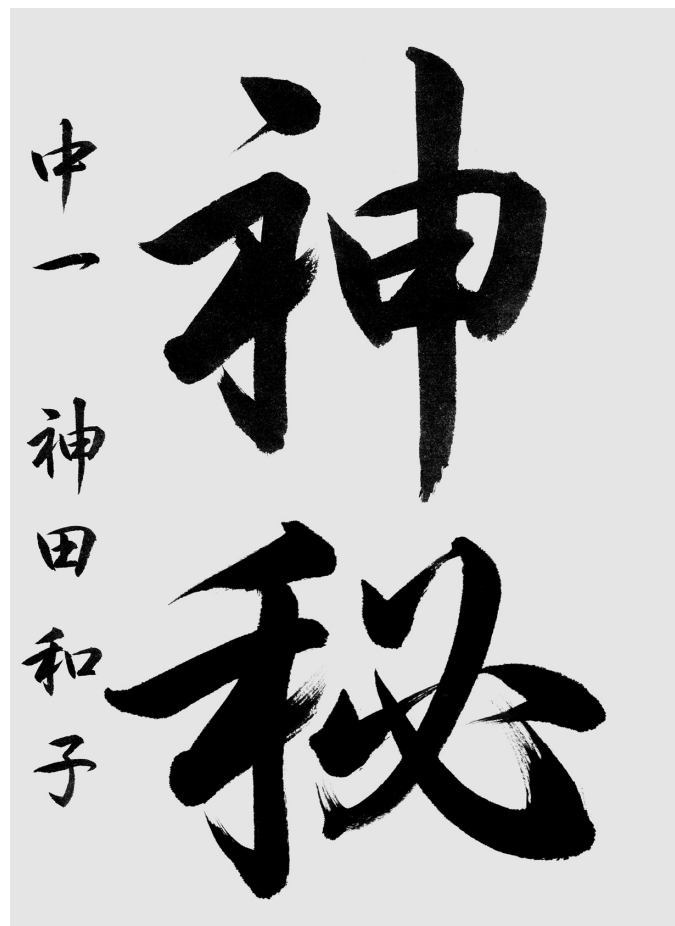 神秘
中一 神田和子